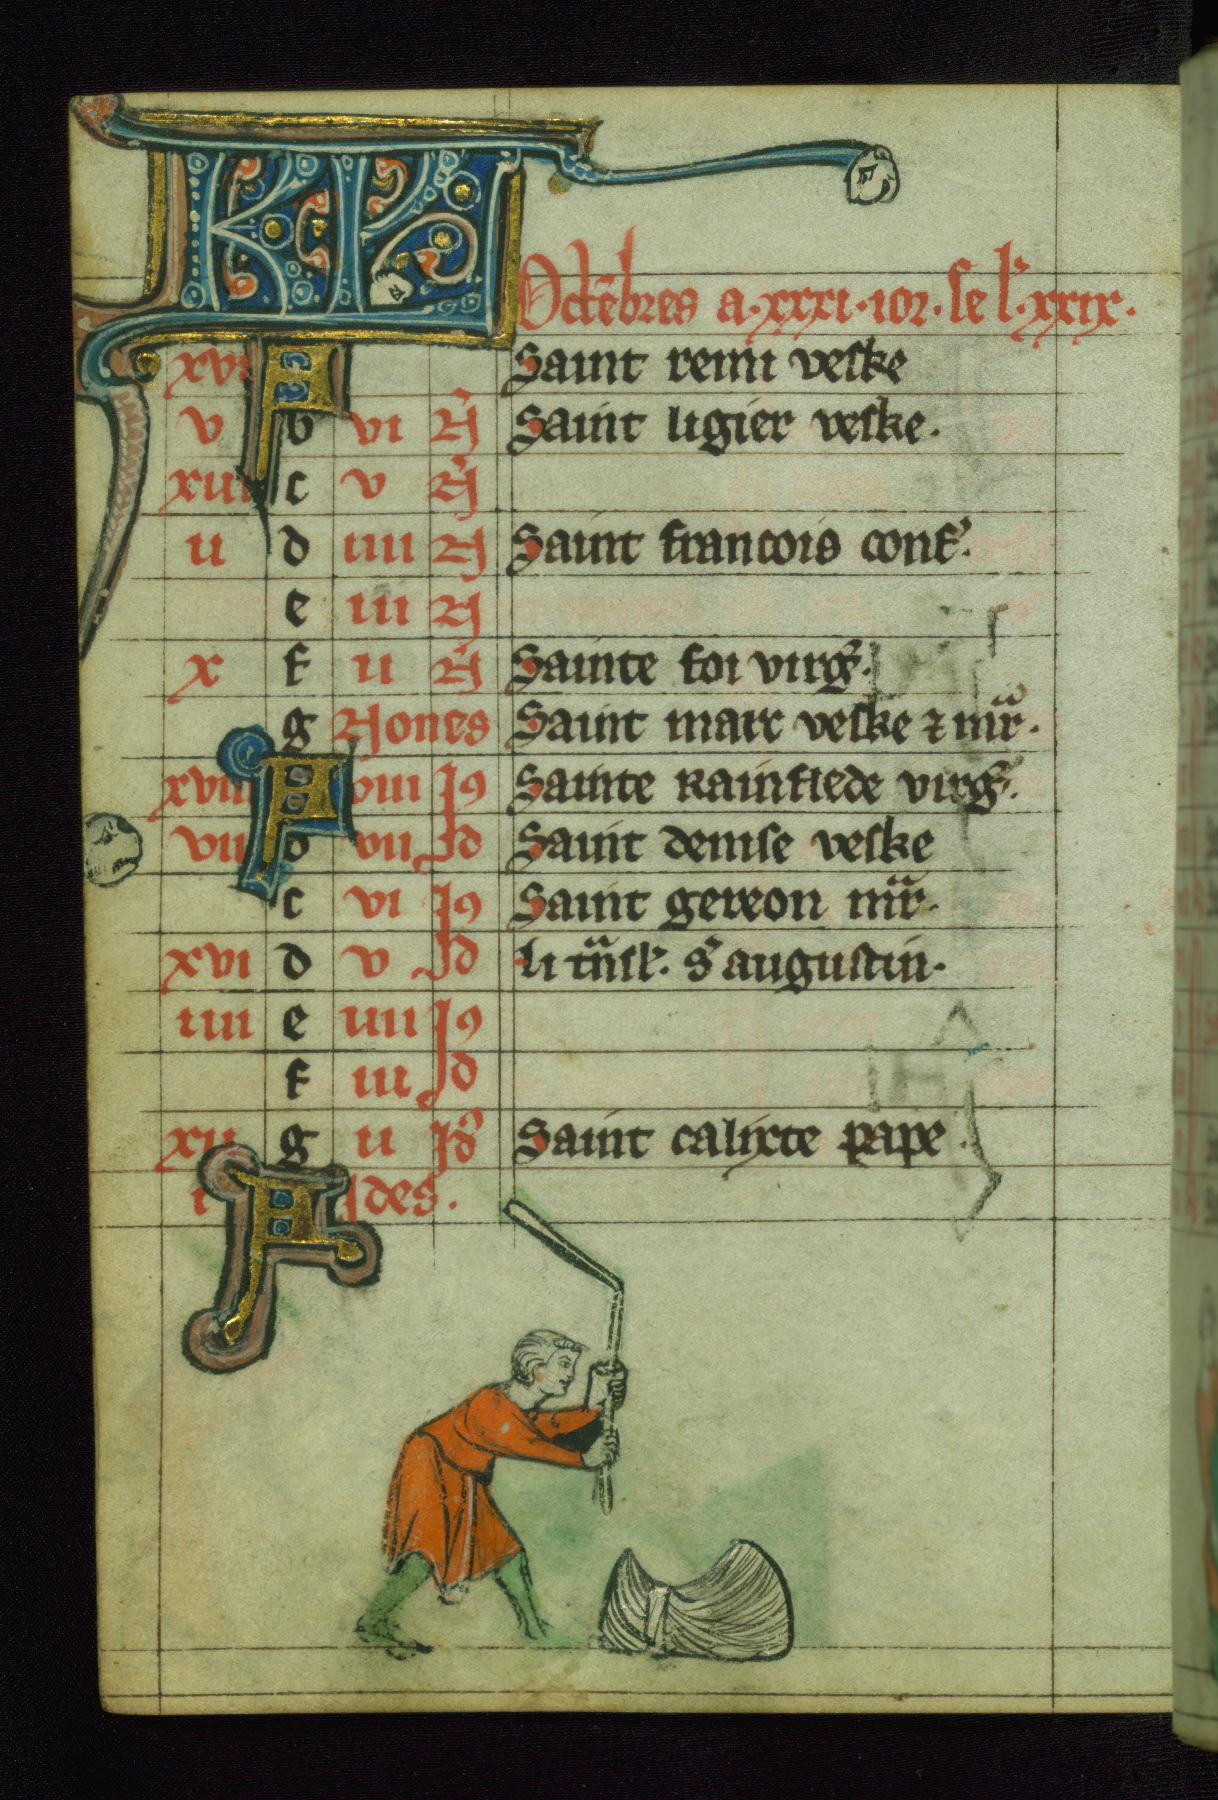 KL Octēbres a·xxxi·ior·se l'·xxix·
xvi A Saint remi veske
v b vi N̄ Saint ligier veske·
xiii c v N̄
ii d iiii N̄ Saint francois conf'·
e iii N̄
x f ii N̄ Sainte foi virg̃·
g Nones Saint marc veske ⁊ mr̃·
xviii A viii Id Sainte Rainflede virg̃·
vii b vii Id Saint denise veske
c vi Id Saint gereon mr̃·
xvi d v Id Li trãsl'· s' augustin·
iiii e iiii Id
f iii Id
xii g ii Id Saint calixte pape·
i A Ides·